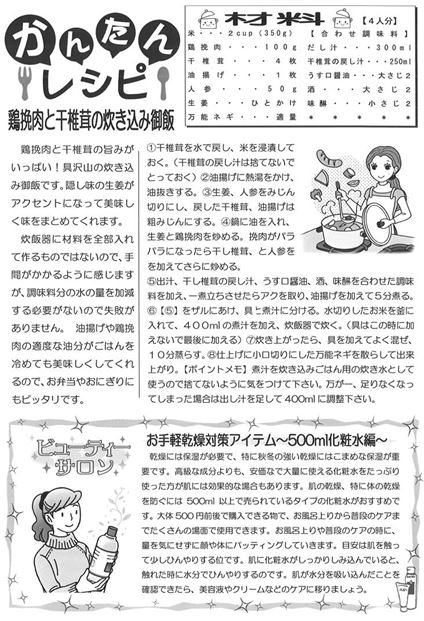 かんたん
レシピ
鶏挽肉と干椎茸の炊き込み御飯
材料【4人分】
米・・・2cup(350g)
鶏挽肉・・・・100g
干椎茸・・・・4枚
油揚げ・・・・1枚
人参・・・・50g
生姜・・・ひとかけ
万能ネギ・・・適量
【合わせ調味料】
だし汁・・・300ml
干し椎茸の戻し汁・・・250ml
うすロ醤油・・大さじ2
酒・・・・大さじ2
味醂・・・・小さじ2
*******
鶏挽肉と干椎茸の旨みが
いっぱい!具沢山の炊き込
み御飯です。隠し味の生姜が
アクセントになって美味し
く味をまとめてくれます。
炊飯器に材料を全部入れ
て作るものではないので、手
間がかかるように感じます
が、調味料分の水の量を加減
する必要がないので失敗が
ありません。 油揚げや鶏挽
肉の適度な油分がごはんを
冷めても美味しくしてくれ
るので、お弁当やおにぎりに
もピッタリです。
①干椎茸を水で戻し、米を浸漬して
おく。(干椎茸の戻し汁は捨てないで
とっておく)②油揚げに熱湯をかけ、
油抜きする。③生姜、人参をみじん
切りにし、戻した干椎茸、油揚げは
粗みじんにする。④鍋に油を入れ、
生姜と鶏挽肉を炒める。挽肉がバラ
バラになったら干し椎茸、と人参を
を加えてさらに炒める。
⑤出汁、干し椎茸の戻し汁、うすロ醤油、酒、味醂を合わせた調味
料を加え、一煮立ちさせたらアクを取り、油揚げを加えて5分煮る。
⑥【⑤】をザルにあけ、具と煮汁に分ける。水切りしたお米を釜に
入れて、400mlの煮汁を加え、炊飯器で炊く。(具はこの時に加
えないで最後に加える)⑦炊き上がったら、具を加えてよく混ぜ、
10分蒸らす。⑧仕上げに小口切りにした万能ネギを散らして出来
上がり。【ポイントメモ】煮汁を炊き込みごはん用の炊き水として
使うので捨てないように気をつけて下さい。万が一、足りなくなっ
てしまった場合は出し汁を足して400mlに調整下さい。
ビューティー
サロン
お手軽乾燥対策アイテム～500ml化粧水編～
乾燥には保湿が必要で、特に秋冬の強い乾燥にはこまめな保湿が重
要です。高級な成分よりも、安価なで大量に使える化粧水をたっぷり
使った方が肌には効果的な場合もあります。肌の乾燥、特に体の乾燥
を防ぐには 500ml 以上で売られているタイプの化粧水がおすすめで
す。大体500円前後で購入できる物で、お風呂上りから普段のケアま
でたくさんの場面で使用できます。お風呂上りや普段のケアの時に、
量を気にせずに顔や体にパッティングしていきます。目安は肌を触っ
て少しひんやりする位です。肌に化粧水がしっかりしみ込んでいると、
触れた時に水分でひんやりするのです。肌が水分を吸い込んだことを
確認できたら、美容液やクリームなどのケアに移りましょう。